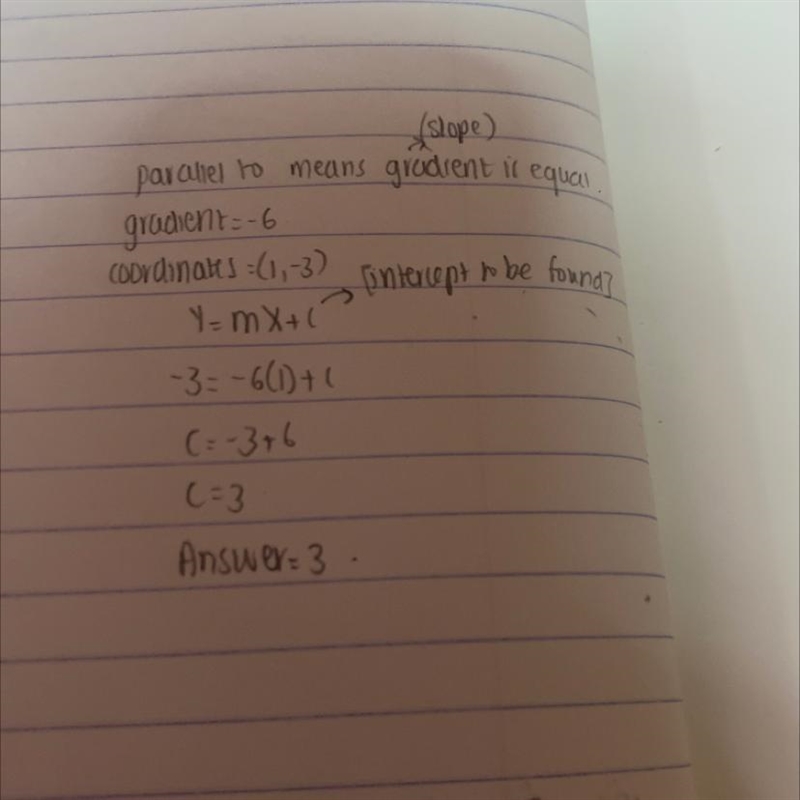 (slope)
parallel to means gradient is equal.
gradient=-6
coordinates=(1,-3)
[intercept to be found]
Y=mX+c
-3=-6(1)+c
C=-3+6
C=3
Answer=3.